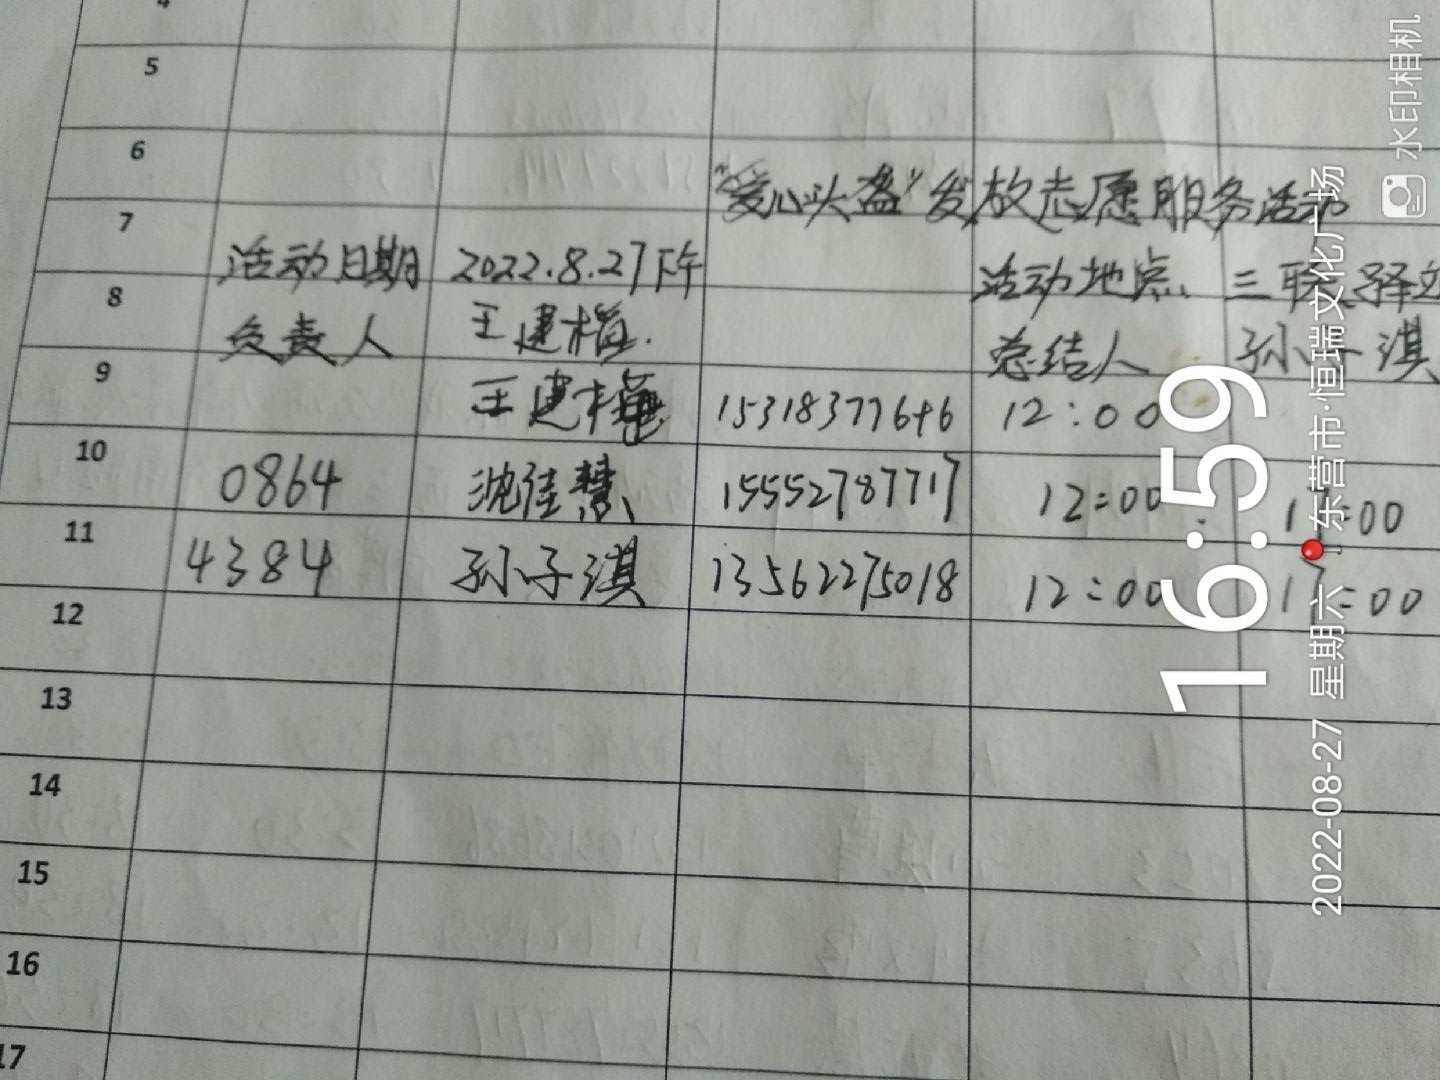 4
5
6
"爱心头盔"发放志愿服务活动
7
活动日期 2022.8.27下午 活动地点
8
负责人 王建梅. 总结人 孙子淇
9
王建梅 15318377646 12:00
10
0864 沈佳慧 15552787717 12:00 17:00
11
4384 孙子淇 13562275018 12:00 17:00
12
13
14
15
16
17
16:59
2022-08-27 星期六 东营市·恒瑞文化广场
水印相机